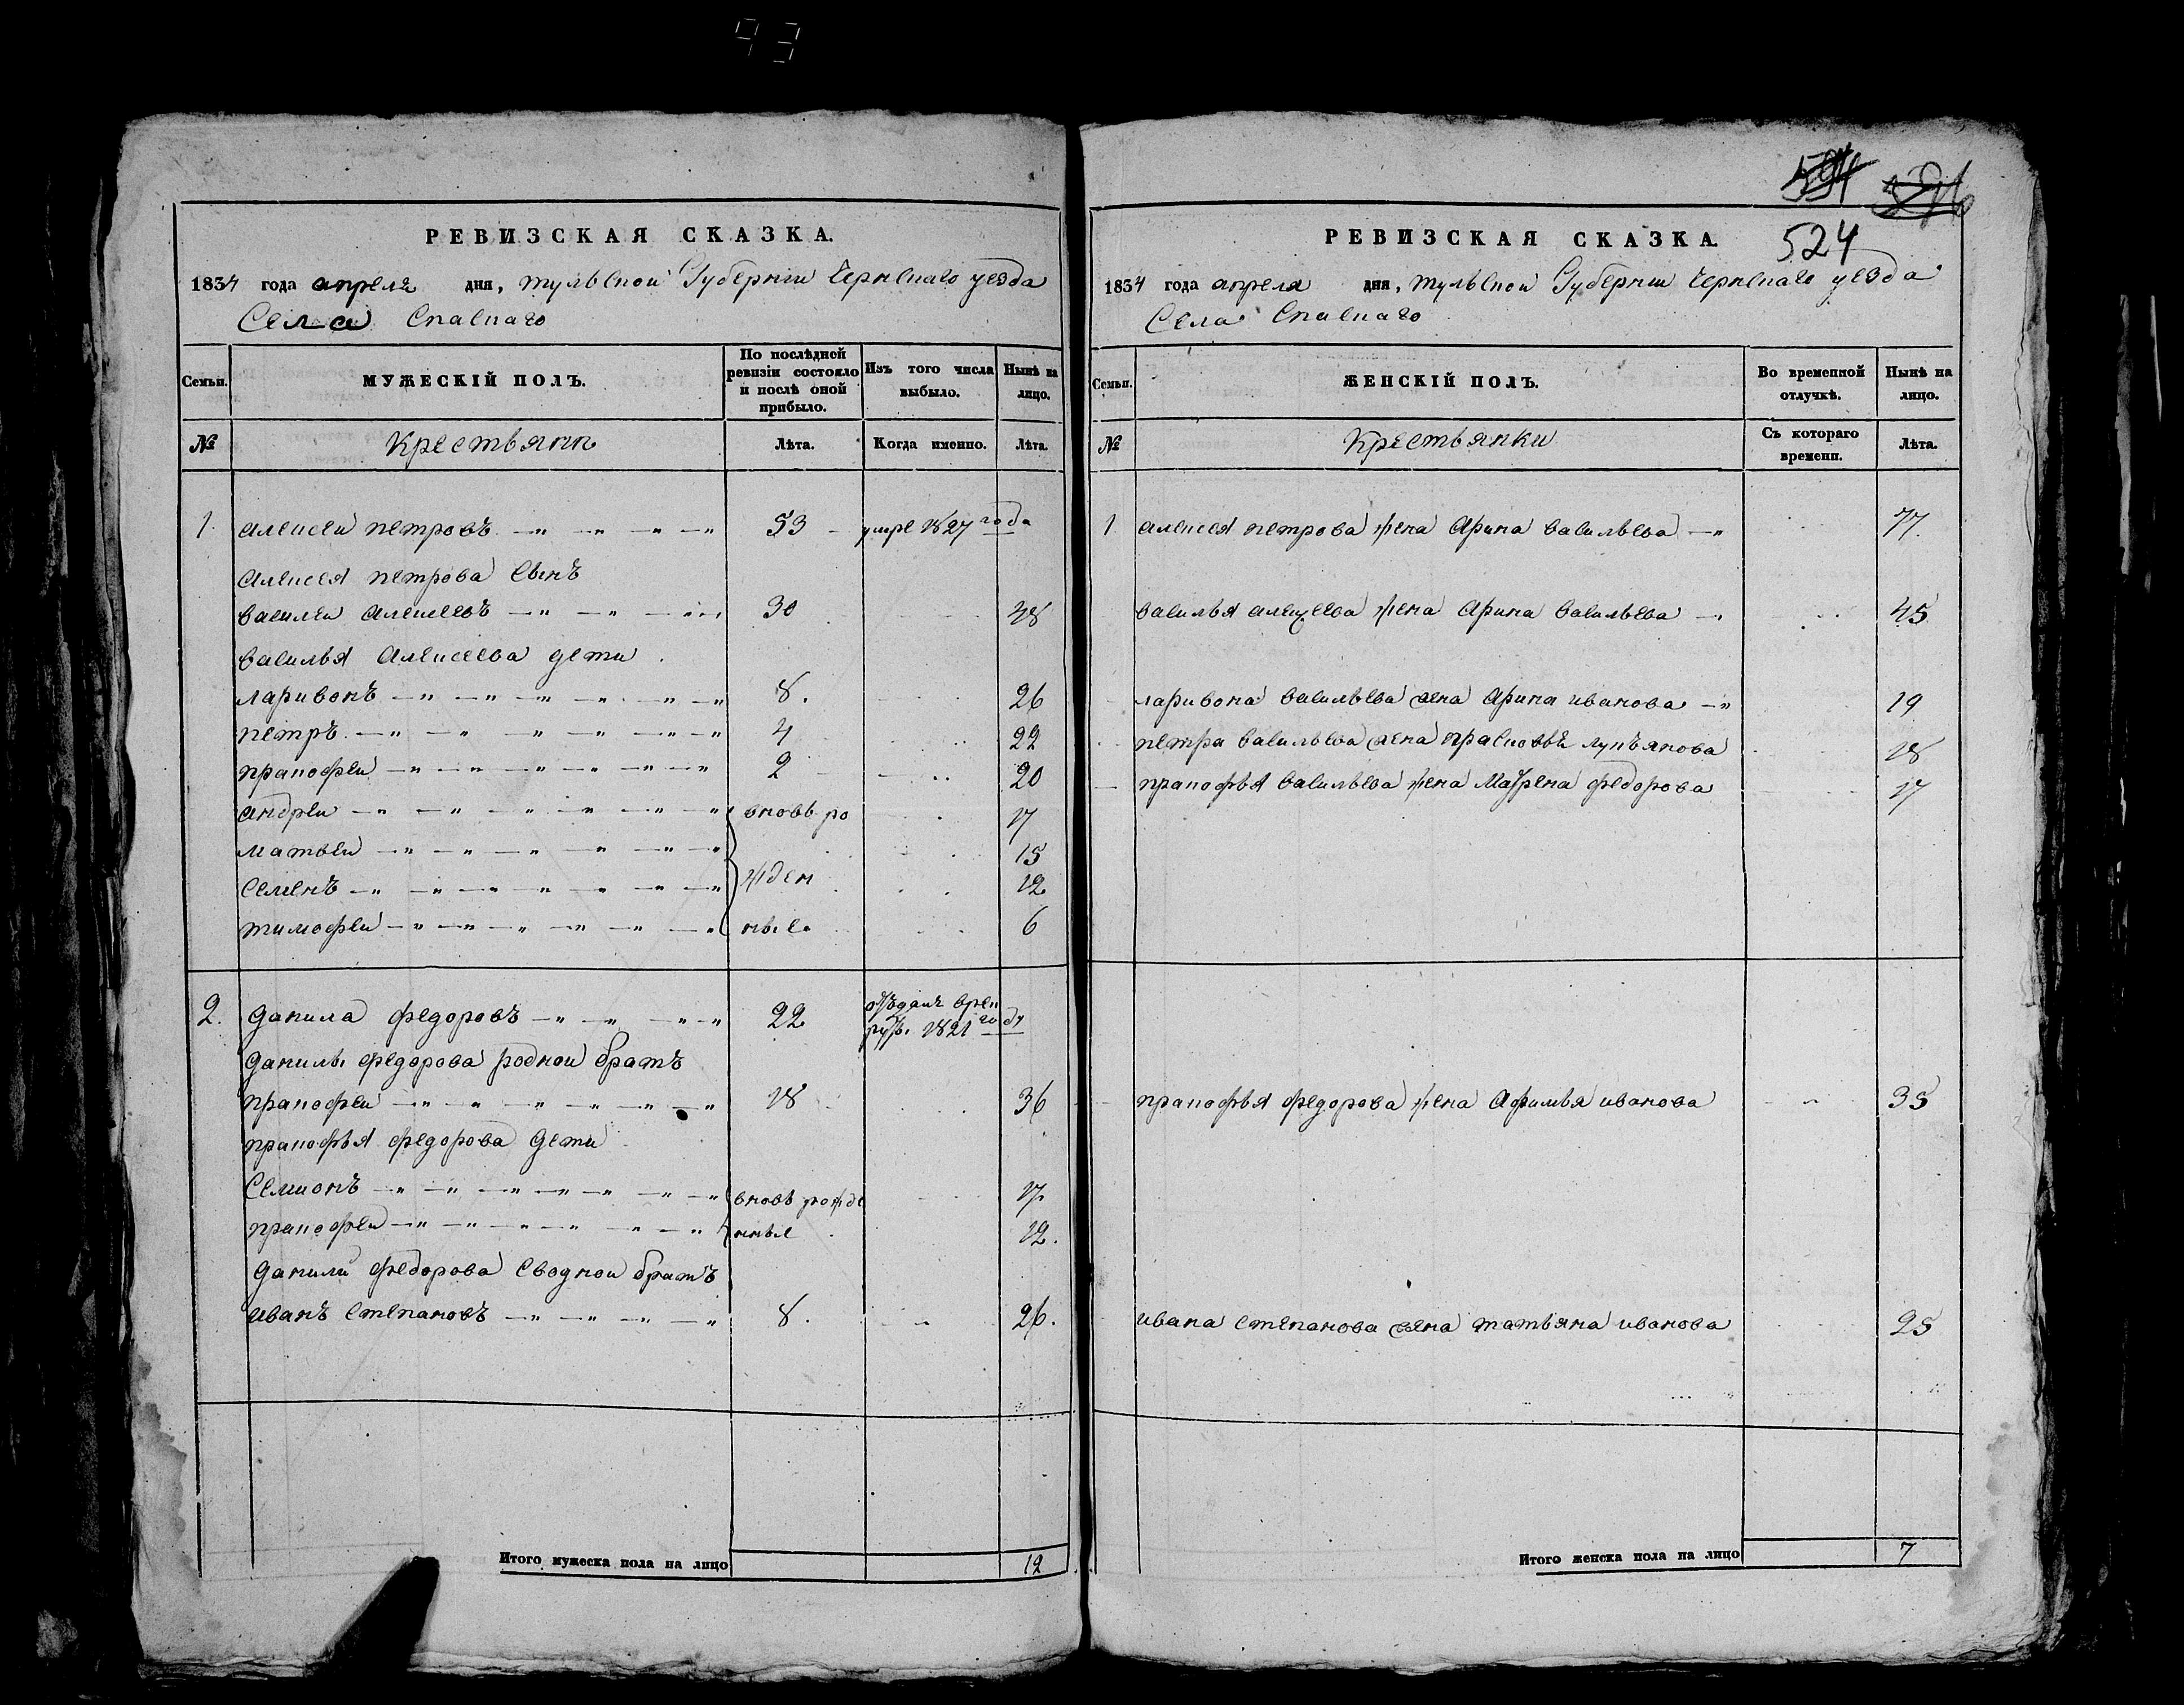 93
РЕВИЗСКАЯ СКАЗКА.
1834 года апреля дня, тульской Губернии Чернскаго уезда
Села Спаскаго
Семьи. МУЖЕСКІЙ ПОЛЪ. По послѣдней ревизіи состояло и послѣ оной прибыло. Изъ того числа выбыло. Нынѣ на лицо.
№ Крестьянп Лѣта. Когда именно. Лѣта.
1. алексеи петровъ 53 умре 1827 года
алексея петрова сынъ
василеи алексеевъ 30 48
василья алексеева дети
ларивонъ 8. 26
петръ 4 22
пракофеи 2 20
андреи вновь ро 17
матвеи 15
семенъ жден 12
тимофеи ные 6
2. данила федоровъ 22 1821 году
данилы федорова родной братъ
пракофеи 18 36
пракофья федорова дети
семионъ вновь рожде 17
пракофеи нные 12.
данилы федорова сводной братъ
иванъ степановъ 8. 26.
Итого мужеска пола на лицо 12
594
524
РЕВИЗСКАЯ СКАЗКА.
1834 года апреля дня, тульской Губернии Чернскаго уезда
Села Спаскаго
Семьи. ЖЕНСКІЙ ПОЛЪ. Во временной отлучкѣ. Нынѣ на лицо.
№ Крестьянки Съ котораго времени. Лѣта.
1 алексея петрова жена арина васильева 77.
василья алексеева жена арина васильева 45
ларивона васильева жена арина иванова 19
петра васильева жена прасковья лукьянова 18
пракофья васильева жена матрена федорова 17
пракофья федорова жена афимья иванова 35
ивана степанова жена татьяна иванова 25
Итого женска пола на лицо 7